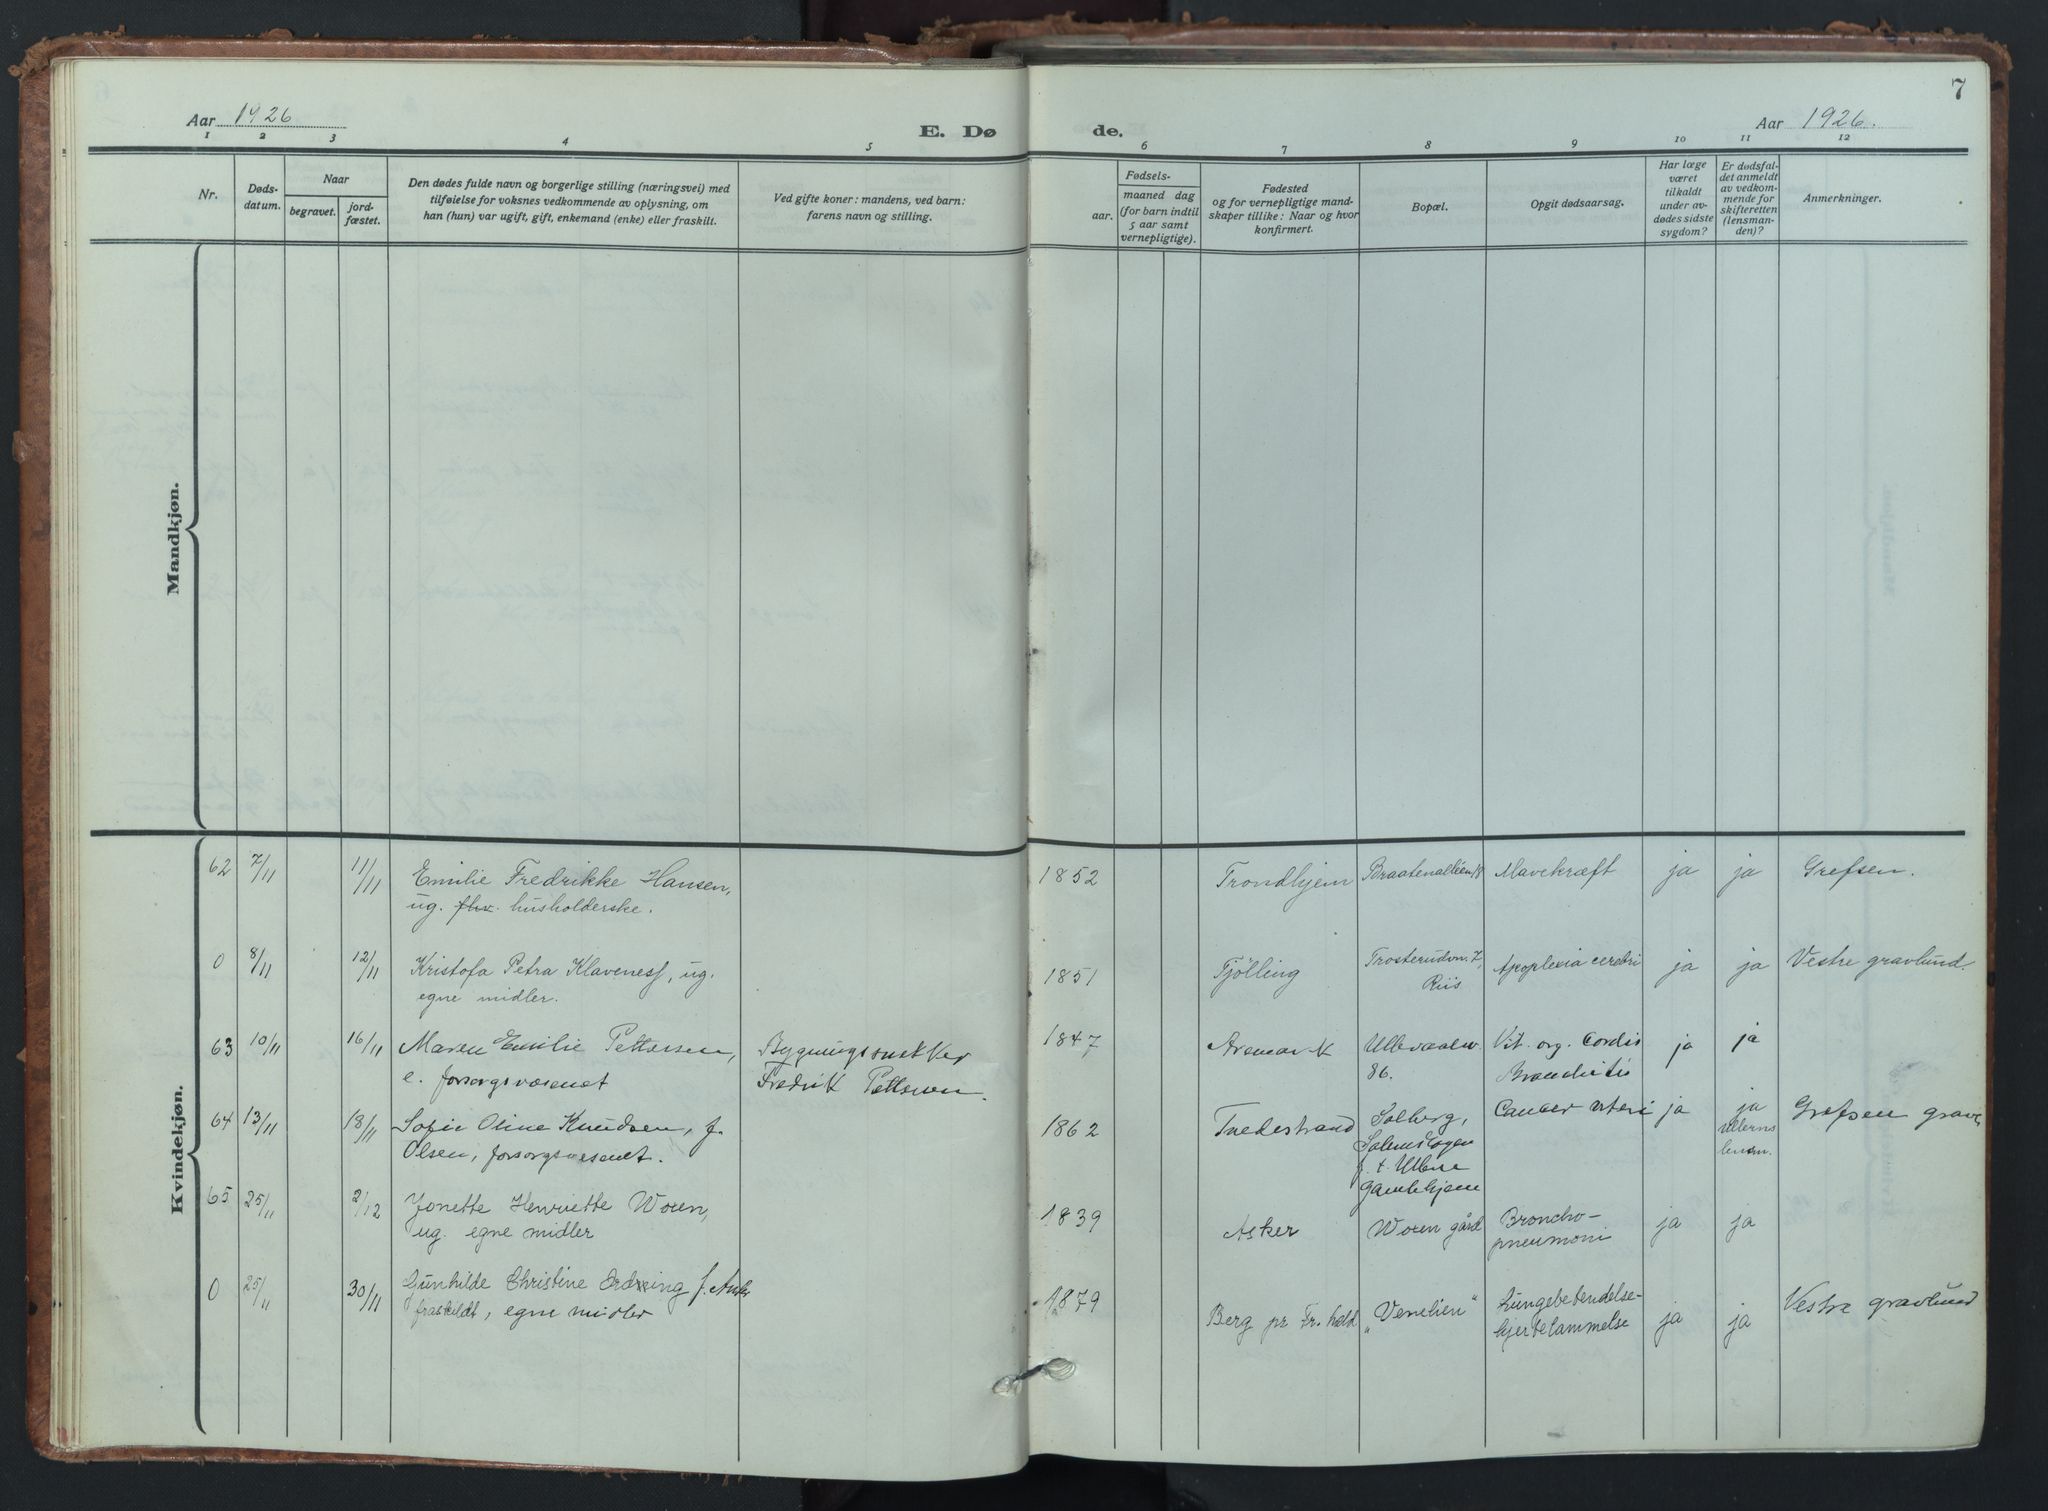 7
Aar 1926
E. Dø
de.
Aar 1926.
1 2 3 4 5 6 7 8 9 10 11 12
Nr.
Døds-
datum.
Naar
begravet.
jord-
fæstet.
Den dødes fulde navn og borgerlige stilling (næringsvei) med
tilføielse for voksnes vedkommende av oplysning, om
han (hun) var ugift, gift, enkemand (enke) eller fraskilt.
Ved gifte koner: mandens, ved barn:
farens navn og stilling.
Fødsels-
aar.
maaned dag
(for barn indtil
5 aar samt
vernepligtige).
Fødested
og for vernepligtige mand-
skaper tillike: Naar og hvor
konfirmert.
Bopæl.
Opgit dødsaarsag.
Har læge
været
tilkaldt
under av-
dødes sidste
sygdom?
Er dødsfal-
det anmeldt
av vedkom-
mende for
skifteretten
(lensman-
den)?
Anmerkninger.
Mandkjøn.
Kvindekjøn.
62 7/11 11/11 Emilie Fredrikke Hansen, 1852 Trondhjem Braatenalléen 18 Mavekræft ja ja Grefsen.
ug. fhv. husholderske.
0 8/11 12/11 Kristofa Petra Klaveness, ug. 1851 Tjölling Trosterudvn. 7, Apoplexia cerebri ja ja Vestre gravlund.
egne midler. Riis
63 10/11 16/11 Maren Emilie Pettersen, Bygningssnekker 1847 Aremark Ullevaalsv. Vit. org. Cordis ja ja
e. forsorgsvæsenet Fredrik Pettersen. 86. Bronchitis
64 13/11 18/11 Sofie Oline Knudsen, f. 1862 Tvedestrand Solberg, Cancer uteri ja ja Grefsen grav
Olsen, forsorgsvesenet. Ullerns
lensm.
gamlehjem
65 25/11 2/12 Jonette Henriette Woxen, 1839 Asker Woxen gård Broncho- ja ja
ug. egne midler pneumoni
0 25/11 30/11 Gunhilde Christine Ording f. 1879 Berg pr Fr.hald „Venelien“ Lungebetendelse- ja ja Vestre gravlund
fraskildt, egne midler hjertelammelse